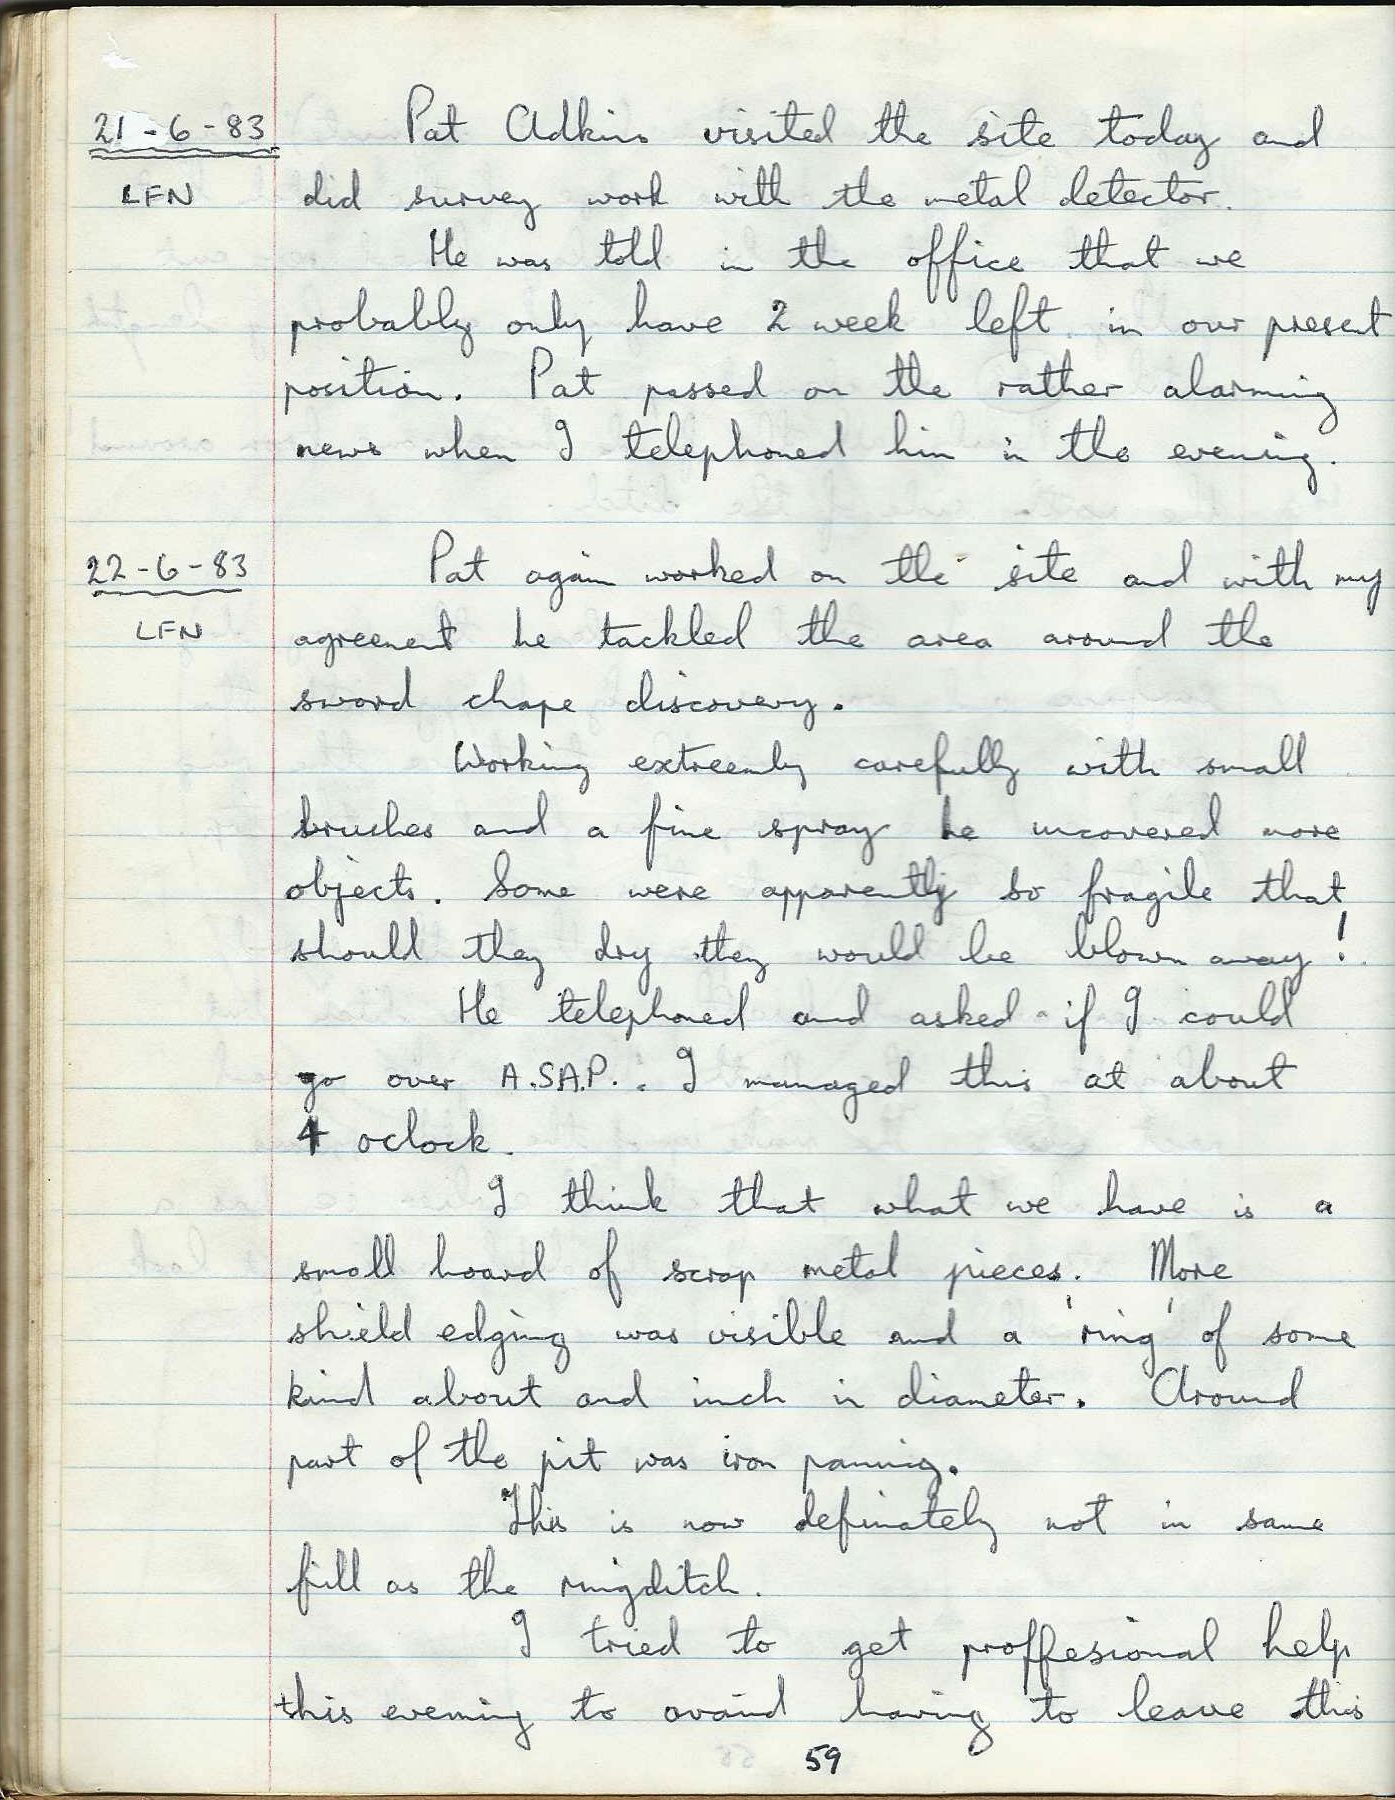 21-6-83 Pat Adkins visited the site today and
LFN did survey work with the metal detector.
He was told in the office that we
probably only have 2 week left in our present
position. Pat passed on the rather alarming
news when I telephoned him in the evening.
22-6-83 Pat again worked on the site and with my
LFN agreement he tackled the area around the
sword chape discovery.
Working extreemly carefully with small
brushes and a fine spray he uncovered more
objects. Some were apparently so fragile that
should they dry they would be blown away!
He telephoned and asked if I could
go over A.S.A.P.. I managed this at about
4 oclock.
I think that what we have is a
small hoard of scrap metal pieces. More
shield edging was visible and a 'ring' of some
kind about and inch in diameter. Around
part of the pit was iron panning.
This is now definately not in same
fill as the ringditch.
I tried to get proffesional help
this evening to avaid having to leave this
59